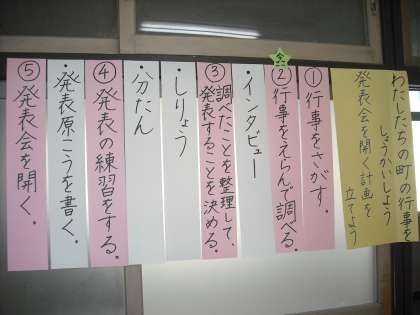 わたしたちの町の行事を
しょうかいしよう
発表会を開く計画を
立てよう
①行事をさがす。
②行事をえらんで調べる。
・インタビュー
③調べたことを整理して、
発表することを決める。
・しりょう
・分たん
④発表の練習をする。
・発表原こうを書く。
⑤発表会を開く。